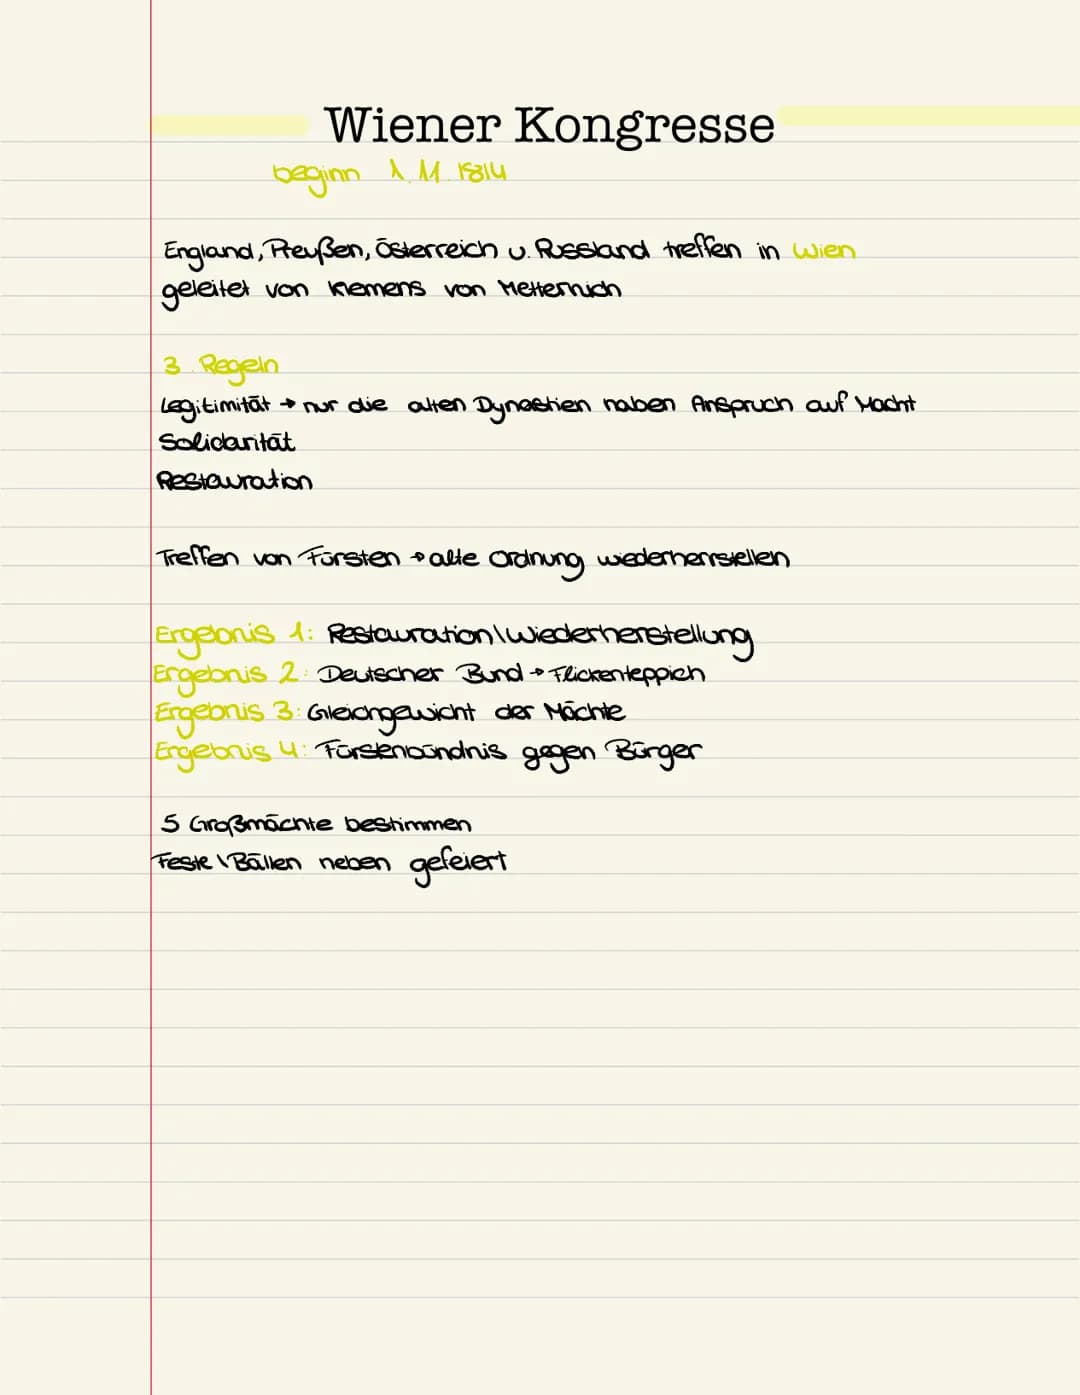 Wiener Kongresse
beginn 1. 11. 1814
England, Preußen, Österreich u. Russland treffen in Wien
geleitet von Klemens von Metternich
3. Regeln
Legitimität → nur die alten Dynastien haben Anspruch auf Macht
Solidarität
Restauration
Treffen von Fürsten → alte Ordnung wiederherrstellen
Ergebnis 1: Restauration\Wiederherstellung
Ergebnis 2: Deutscher Bund → Flickenteppich
Ergebnis 3: Gleichgewicht der Mächte
Ergebnis 4: Fürstenbündnis gegen Bürger
5 Großmächte bestimmen
Feste\Bällen neben gefeiert